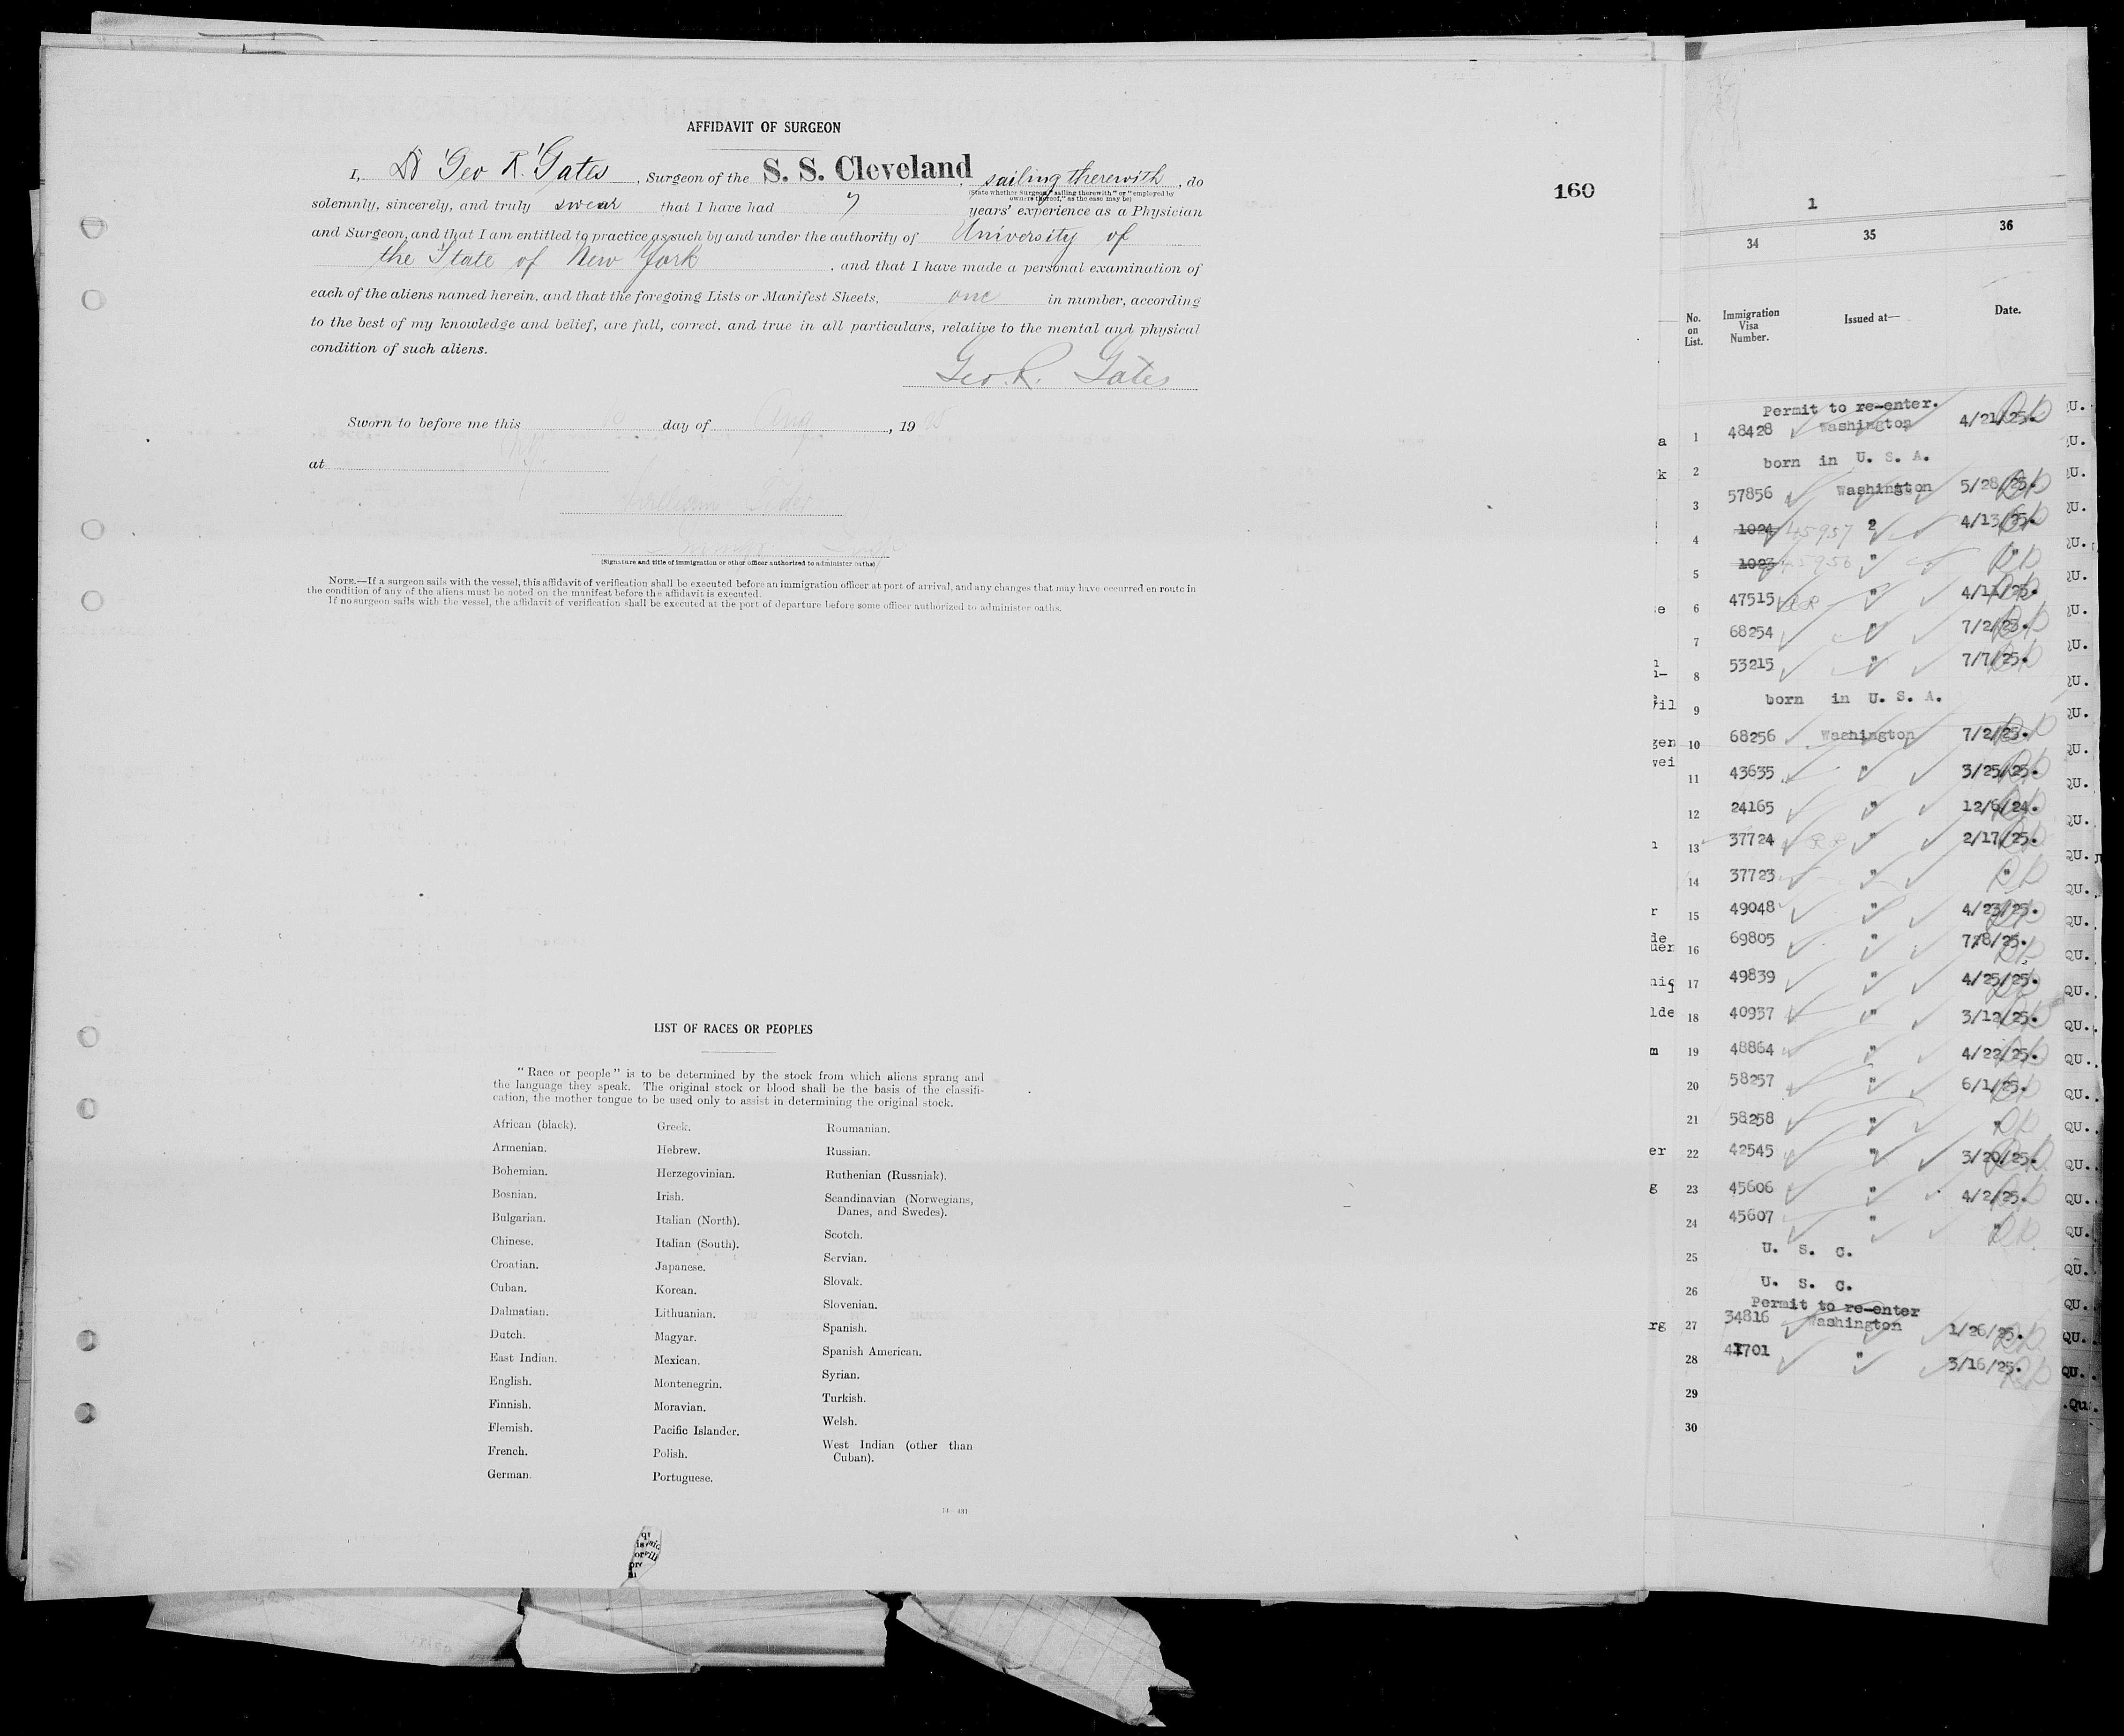 AFFIDAVIT OF SURGEON
I, Dr Geo R. Gates, Surgeon of the S. S. Cleveland, sailing therewith, do
(State whether Surgeon "sailing therewith" or "employed by
owners thereof," as the case may be)
solemnly, sincerely, and truly swear that I have had 7 years' experience as a Physician
and Surgeon, and that I am entitled to practice as such by and under the authority of University of
the State of New York, and that I have made a personal examination of
each of the aliens named herein, and that the foregoing Lists or Manifest Sheets, one in number, according
to the best of my knowledge and belief, are full, correct, and true in all particulars, relative to the mental and physical
condition of such aliens.
Geo. R. Gates
Sworn to before me this day of Aug, 19
at
William
(Signature and title of immigration or other officer authorized to administer oaths)
NOTE.—If a surgeon sails with the vessel, this affidavit of verification shall be executed before an immigration officer at port of arrival, and any changes that may have occurred en route in
the condition of any of the aliens must be noted on the manifest before the affidavit is executed.
If no surgeon sails with the vessel, the affidavit of verification shall be executed at the port of departure before some officer authorized to administer oaths.
160
LIST OF RACES OR PEOPLES
"Race or people" is to be determined by the stock from which aliens sprang and
the language they speak. The original stock or blood shall be the basis of the classifi-
cation, the mother tongue to be used only to assist in determining the original stock.
African (black).
Armenian.
Bohemian.
Bosnian.
Bulgarian.
Chinese.
Croatian.
Cuban.
Dalmatian.
Dutch.
East Indian.
English.
Finnish.
Flemish.
French.
German.
Greek.
Hebrew.
Herzegovinian.
Irish.
Italian (North).
Italian (South).
Japanese.
Korean.
Lithuanian.
Magyar.
Mexican.
Montenegrin.
Moravian.
Pacific Islander.
Polish.
Portuguese.
Roumanian.
Russian.
Ruthenian (Russniak).
Scandinavian (Norwegians,
Danes, and Swedes).
Scotch.
Servian.
Slovak.
Slovenian.
Spanish.
Spanish American.
Syrian.
Turkish.
Welsh.
West Indian (other than
Cuban).
1
34 35 36
No. on List. Immigration Visa Number. Issued at— Date.
Permit to re-enter.
1 48428 Washington 4/21/25.
2 born in U. S. A.
3 57856 Washington 5/28/25.
4 1024 45957 4/13/25.
5 1023 45956 "
6 47515 " 4/11/25.
7 68254 " 7/2/25.
8 53215 " 7/7/25.
9 born in U. S. A.
10 68256 Washington 7/2/25.
11 43635 " 3/25/25.
12 24165 " 12/6/24.
13 37724 " 2/17/25.
14 37723 " "
15 49048 " 4/23/25.
16 69805 " 7/8/25.
17 49839 " 4/25/25.
18 40937 " 3/12/25.
19 48864 " 4/22/25.
20 58257 " 6/1/25.
21 58258 " "
22 42545 " 3/20/25.
23 45606 " 4/2/25.
24 45607 " "
25 U. S. C.
26 U. S. C.
Permit to re-enter
27 34816 Washington 1/26/25.
28 41701 " 3/16/25.
29
30